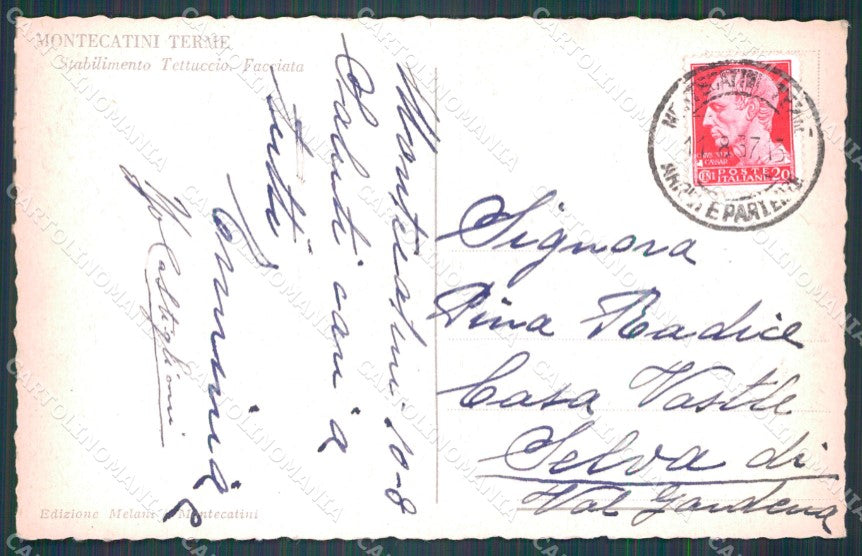 MONTECATINI TERME
Stabilimento Tettuccio. Facciata
Montecatini 10-8
Saluti cari a
tutti
Erminia e
Castiglioni
Edizione Melani - Montecatini
POSTE
ITALIANE
20
MONTECATINI TERME
8 37
ARRIVI E PARTENZE
Signora
Pina Radice
Casa Vastlè
Selva di
Val Gardena
CARTOLINOMANIA